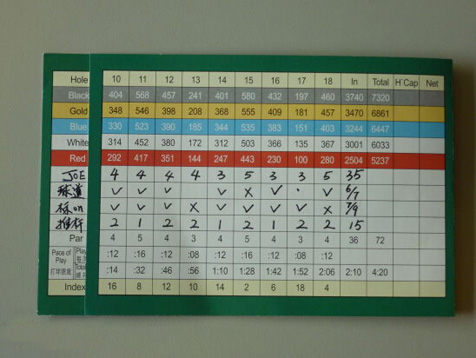 Hole 10 11 12 13 14 15 16 17 18 In Total H'Cap Net
Black 404 568 457 241 401 580 432 197 460 3740 7320
Gold 348 546 398 208 368 555 409 181 457 3470 6861
Blue 330 523 390 185 344 535 383 151 403 3244 6447
White 314 452 380 172 312 503 366 135 367 3001 6033
Red 292 417 351 144 247 443 230 100 280 2504 5237
JOE 4 4 4 4 3 5 3 3 5 35
球道 ✓ ✓ ✓ ✓ x ✓ · ✓ 6/7
标on ✓ ✓ ✓ x ✓ ✓ ✓ ✓ x 7/9
推杆 2 1 2 2 1 2 1 2 2 15
Par 4 5 4 3 4 5 4 3 4 36 72
Pace of Play :12 :16 :12 :08 :12 :16 :12 :08 :12
:14 :32 :46 :56 1:10 1:28 1:42 1:52 2:06 2:10 4:20
Index 16 8 12 10 14 2 6 18 4